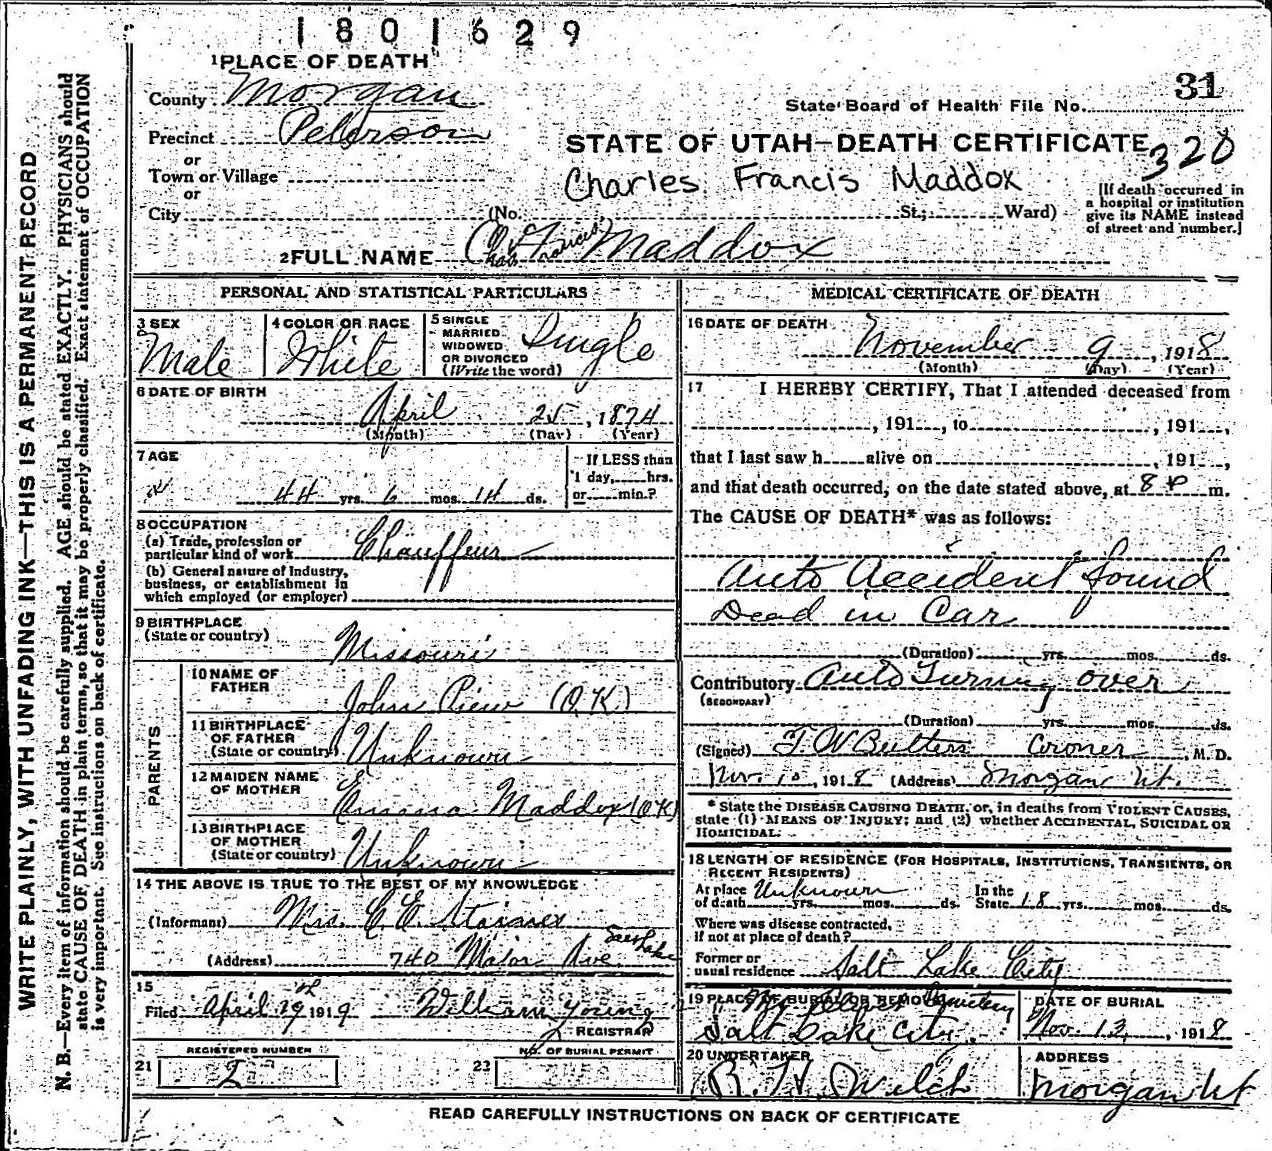 1801629
1 PLACE OF DEATH
County Morgan
31
State Board of Health File No.
Precinct Peterson
STATE OF UTAH—DEATH CERTIFICATE
320
or
Town or Village
Charles Francis Maddox
or
City (No. St.; Ward)
[If death occurred in
a hospital or institution
give its NAME instead
of street and number.]
2 FULL NAME Chas Francis Maddox
PERSONAL AND STATISTICAL PARTICULARS
3 SEX
Male
4 COLOR OR RACE
White
5 SINGLE
MARRIED
WIDOWED
OR DIVORCED
(Write the word)
Single
6 DATE OF BIRTH
April 25, 1874
(Month) (Day) (Year)
7 AGE
44 yrs. 6 mos. 14 ds.
If LESS than
1 day, hrs.
or min.?
8 OCCUPATION
(a) Trade, profession or
particular kind of work Chauffeur
(b) General nature of Industry,
business, or establishment in
which employed (or employer)
9 BIRTHPLACE
(State or country)
Missouri
PARENTS
10 NAME OF
FATHER
John (O.K.)
11 BIRTHPLACE
OF FATHER
(State or country) Unknown
12 MAIDEN NAME
OF MOTHER
Emma Maddox (OK)
13 BIRTHPLACE
OF MOTHER
(State or country) Unknown
14 THE ABOVE IS TRUE TO THE BEST OF MY KNOWLEDGE
(Informant) Mrs. C. E.
(Address) 740 Major Ave Salt Lake
15
Filed April 19th 1919 William Young
REGISTRAR
REGISTERED NUMBER
21 2
NO. OF BURIAL PERMIT
22
MEDICAL CERTIFICATE OF DEATH
16 DATE OF DEATH
November 9, 1918
(Month) (Day) (Year)
17 I HEREBY CERTIFY, That I attended deceased from
, 191 , to , 191 ,
that I last saw h alive on , 191 ,
and that death occurred, on the date stated above, at 8 P m.
The CAUSE OF DEATH* was as follows:
Auto Accident found
Dead in Car
(Duration) yrs. mos. ds.
Contributory Auto Turning over
(SECONDARY)
(Duration) yrs. mos. ds.
(Signed) T. W Butters Coroner, M. D.
Nov. 10, 1918 (Address) Morgan Ut.
* State the DISEASE CAUSING DEATH, or, in deaths from VIOLENT CAUSES,
state (1) MEANS OF INJURY; and (2) whether ACCIDENTAL, SUICIDAL OR
HOMICIDAL.
18 LENGTH OF RESIDENCE (FOR HOSPITALS, INSTITUTIONS, TRANSIENTS, OR
RECENT RESIDENTS)
At place
of death Unknown yrs. mos. ds.
In the
State 18 yrs. mos. ds.
Where was disease contracted,
if not at place of death?
Former or
usual residence Salt Lake City
19 PLACE OF BURIAL OR REMOVAL
Mt. Olivet Cemetery
Salt Lake City.
DATE OF BURIAL
Nov. 13, 1918
20 UNDERTAKER
R. H. Welch
ADDRESS
Morgan Ut
READ CAREFULLY INSTRUCTIONS ON BACK OF CERTIFICATE
WRITE PLAINLY, WITH UNFADING INK—THIS IS A PERMANENT RECORD
N. B.—Every item of information should be carefully supplied. AGE should be stated EXACTLY. PHYSICIANS should
state CAUSE OF DEATH in plain terms, so that it may be properly classified. Exact statement of OCCUPATION
is very important. See instructions on back of certificate.